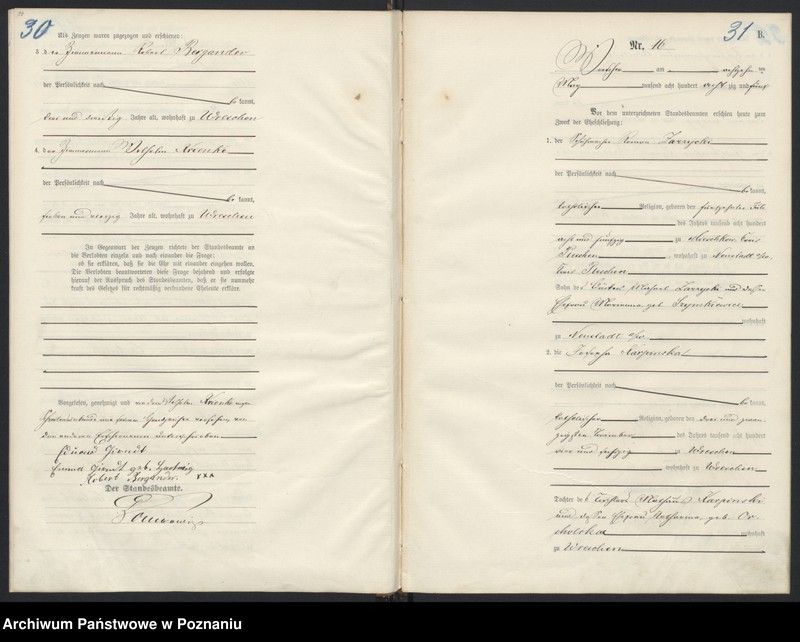 30
Als Zeugen waren zugezogen und erschienen:
3. der Zimmermann Robert Bergander
der Persönlichkeit nach
be kannt,
drei und dreißig Jahre alt, wohnhaft zu Wreschen
4. der Zimmermann Wilhelm
der Persönlichkeit nach
be kannt,
sieben und vierzig Jahre alt, wohnhaft zu Wreschen
In Gegenwart der Zeugen richtete der Standesbeamte an
die Verlobten einzeln und nach einander die Frage:
ob sie erklären, daß sie die Ehe mit einander eingehen wollen.
Die Verlobten beantworteten diese Frage bejahend und erfolgte
hierauf der Ausspruch des Standesbeamten, daß er sie nunmehr
kraft des Gesetzes für rechtmäßig verbundene Eheleute erkläre.
Vorgelesen, genehmigt und von dem Wilhelm wegen
Schreibensunkunde mit seinem Handzeichen versehen von
den anderen Erschienenen unterschrieben
Eduard Gierdt
Gierdt geb. Hartwig
Robert Bergander. xxx
Der Standesbeamte.
31 B.
Nr. 16
Wreschen am achtzehn ten
May tausend acht hundert acht zig und fünf
Vor dem unterzeichneten Standesbeamten erschien heute zum
Zweck der Eheschließung:
1. der Schuhmacher Roman Zarzycki
der Persönlichkeit nach
be kannt,
katholischer Religion, geboren den fünfzehnten Feb
des Jahres tausend acht hundert
acht und fünfzig zu Kreis
wohnhaft zu Neustadt
Kreis
Sohn des Zarzycki und dessen
Ehefrau Marianna geb. Szymkiewicz
wohnhaft
zu Neustadt
2. die Josepha Karpinska
der Persönlichkeit nach
be kannt,
katholischer Religion, geboren den drei und zwan
zigsten November des Jahres tausend acht hundert
vier und sechzig zu Wreschen
wohnhaft zu Wreschen
Tochter des Tischlers Karpinski
und dessen Ehefrau Katharina geb.
wohnhaft
zu Wreschen
Archiwum Państwowe w Poznaniu